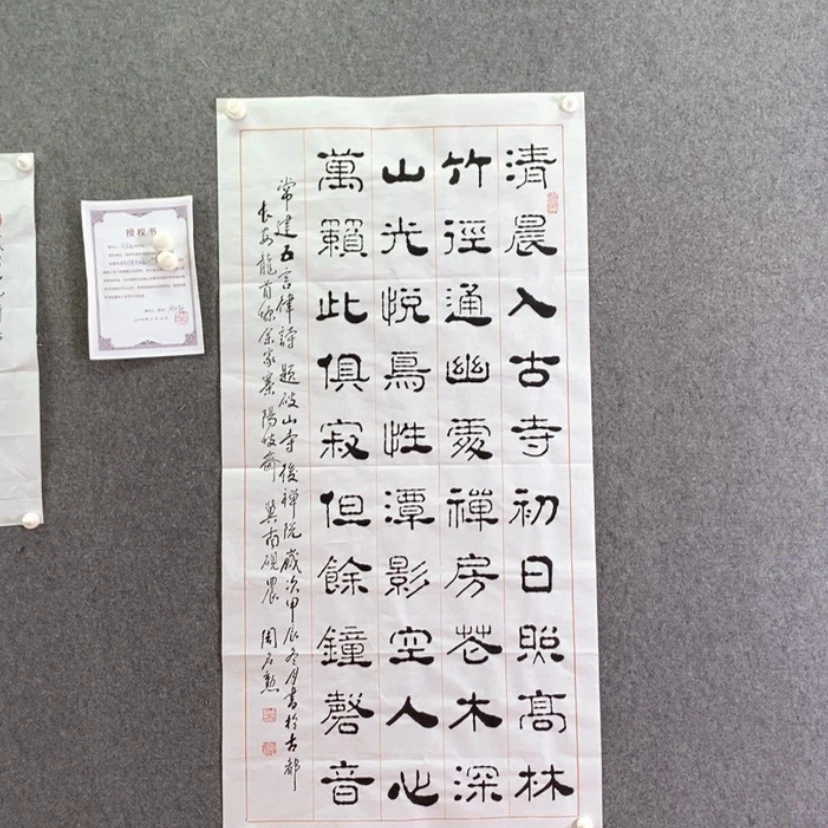 清晨入古寺初日照高林
竹徑通幽處禪房花木深
山光悦鳥性潭影空人心
萬籟此俱寂但餘鐘磬音
常建五言律詩題破山寺後禪院歲次甲辰冬月書於古都
長安龍首塬余家寨陽坡齋冀南硯農周名勲
授权书